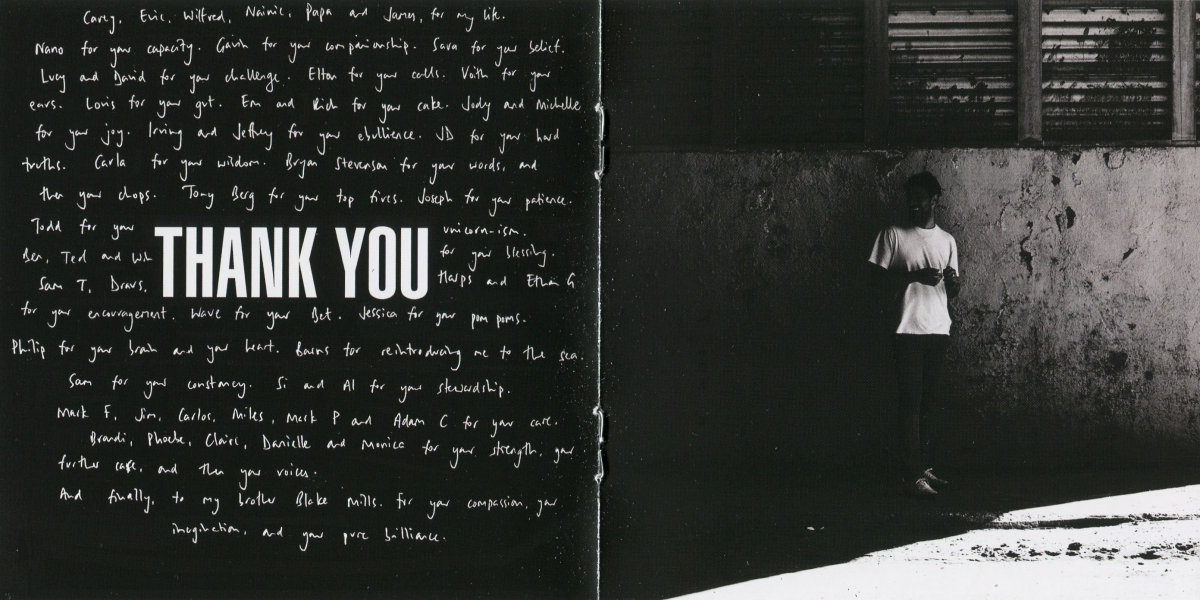 Carey, Evie, Wilfred, Nainie, Papa and James, for my life.
Nano for your capacity. Gavin for your companionship. Sava for your belief.
Lucy and David for your challenge. Elton for your calls. Voith for your
ears. Louis for your gut. Em and Rich for your cake. Jody and Michelle
for your joy. Irving and Jeffrey for your ebullience. JD for your hard
truths. Carla for your wisdom. Bryan Stevenson for your words, and
then your chops. Tony Berg for your top fives. Joseph for your patience.
Todd for your unicorn-ism.
Ben, Ted and for your blessing.
THANK YOU
Sam T, Dravs, Harps and Ethan G
for your encouragement. Wave for your Bet. Jessica for your pom poms.
Philip for your brain and your heart. Barns for reintroducing me to the sea.
Sam for your constancy. Si and Al for your stewardship.
Mark F, Jim, Carlos, Miles, Mark P and Adam C for your care.
Brandi, Phoebe, Clairo, Danielle and Monica for your strength, your
further care, and then your voices.
And finally, to my brother Blake Mills. For your compassion, your
imagination, and your pure brilliance.